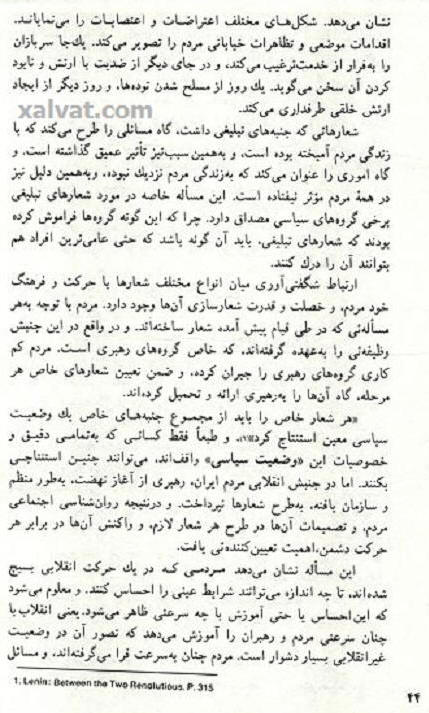 نشان می‌دهد. شکل‌هـای مختلف اعتراضـات و اعتصابـات را می‌نمایانـد.
اقدامات موضعی و تظاهرات خیابانی مردم را تصویر می‌کند. یك‌جا سربازان
را به‌فرار از خدمت‌ترغیب می‌کند، و در جای دیگر از ضدیت با ارتش و نابود
کردن آن سخن می‌گوید. یك روز از مسلح شدن توده‌ها، و روز دیگر از ایجاد
ارتش خلقی طرفداری می‌کند.
xalvat.com
شعارهائی که جنبه‌های تبلیغی داشت، گاه مسائلی را طرح می‌کند که با
زندگی مردم آمیخته بوده است، و به‌همین سبب‌نیز تأثیر عمیق گذاشته است، و
گاه اموری را عنوان می‌کند که به‌زندگی مردم نزدیك نبوده، وبه‌همین دلیل نیز
در همهٔ مردم مؤثر نیفتاده است. این مسأله خاصه در مورد شعارهای تبلیغی
برخی گروه‌های سیاسی مصداق دارد. چرا که این گونه گروه‌ها فراموش کرده
بودند که شعارهای تبلیغی، باید آن گونه باشد که حتی عامی‌ترین افراد هم
بتوانند آن را درك کنند.
ارتباط شگفتی‌آوری میان انواع مختلف شعارها با حرکت و فرهنگ
خود مردم، و خصلت و قدرت شعارسازی آن‌ها وجود دارد. مردم با توجه به‌هر
مسأله‌ئی که در طی قیام پیش آمده شعار ساخته‌اند. و در واقع در این جنبش
وظیفه‌ئی را به‌عهده گرفته‌اند، که خاص گروه‌های رهبری است. مردم کم
کاری گروه‌های رهبری را جبران کرده، و ضمن تعیین شعارهای خاص هر
مرحله، گاه آن‌ها را به‌رهبری ارائه و تحمیل کرده‌اند.
«هر شعار خاص را باید از مجمـوع جنبه‌هـای خاص یك وضعیـت
سیاسی معین استنتاج کرد»۱، و طبعاً فقط کسانـی که به‌تمامـی دقیـق و
خصوصیات این «وضعیت سیاسی» واقف‌اند، می‌توانند چنیـن استنتاجـی
بکنند. اما در جنبش انقلابی مردم ایران، رهبری از آغاز نهضت، به‌طور منظم
و سازمان یافته، به‌طرح شعارها نپرداخت. و درنتیجه روان‌شناسی اجتماعی
مردم، و تصمیمات آن‌ها در طرح هر شعار لازم، و راکنش آن‌ها در برابر هر
حرکت دشمن،اهمیت تعیین‌کننده‌ئی یافت.
این مسأله نشان می‌دهد مردمـی کـه در یك حرکت انقلابی بسیج
شده‌اند، تا چه اندازه می‌توانند شرایط عینی را احساس کنند. و معلوم می‌شود
که این‌احساس یا حتی آموزش با چه سرعتی ظاهر می‌شود. یعنی انقلاب‌با
چنان سرعتی مردم و رهبران را آموزش می‌دهد که تصور آن در وضعیـت
غیرانقلابی بسیار دشوار است. مردم چنان به‌سرعت فرا می‌گرفته‌اند، و مسائل
1. Lenin: Between the Two Revolutions. P. 315
۴۴